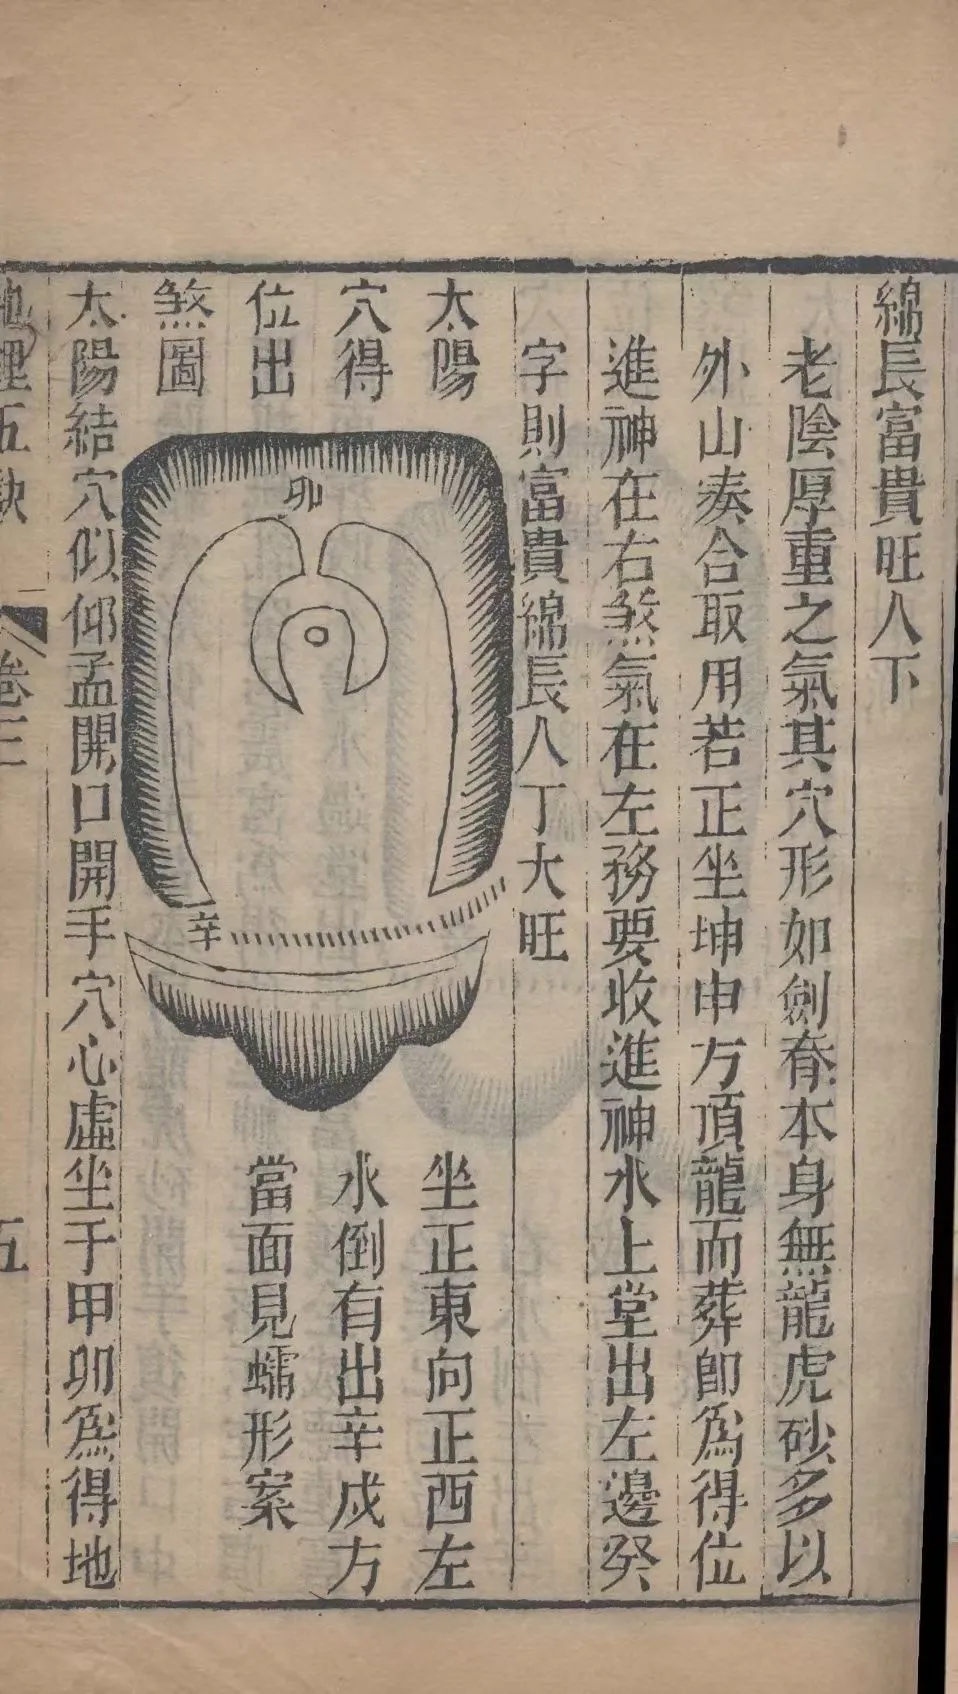 綿長富貴旺人下
老陰厚重之氣其穴形如劍脊本身無龍虎砂多以
外山湊合取用若正坐坤申方頂龍而葬卽為得位
進神在右煞氣在左務要收進神水上堂出左邊癸
字則富貴綿長人丁大旺
太陽
穴得
位出
煞圖
卯
辛
坐正東向正西左
水倒右出辛戍方
當面見蠕形案
太陽結穴似仰盂開口開手穴心虛坐于甲卯為得地
地理五訣
卷三
五